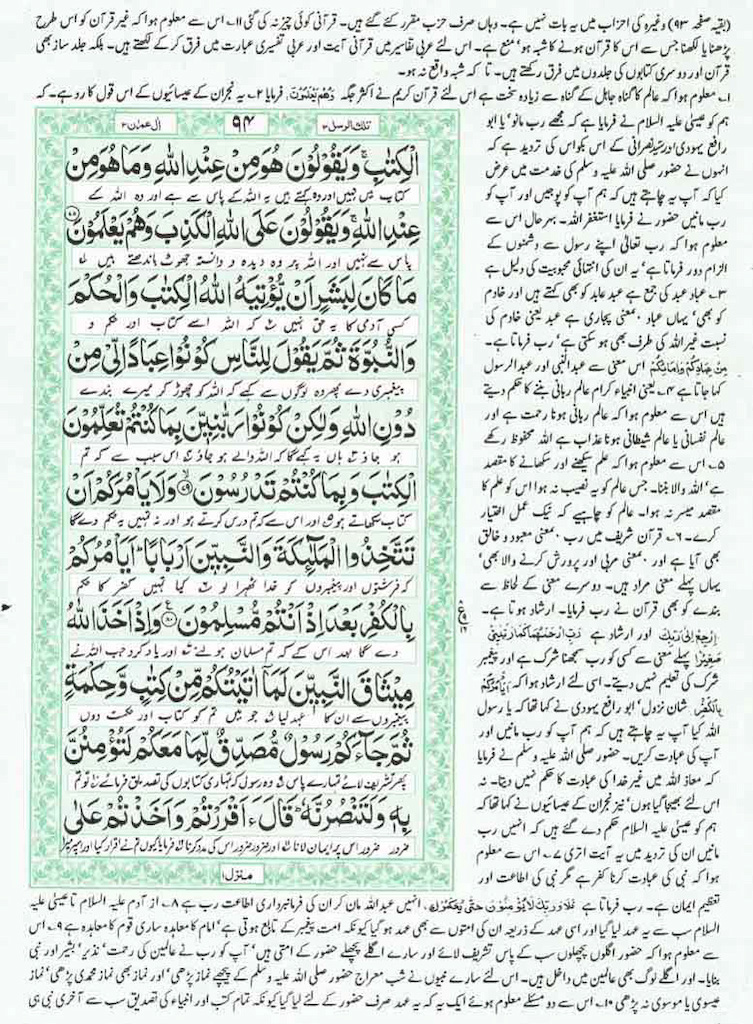 (بقیہ صفحہ ۹۳) وغیرہ کی احزاب میں یہ بات نہیں ہے۔ وہاں صرف حزب مقرر کئے گئے ہیں۔ قرآنی کوئی چیز نہ کی گئی ۱۱۔ اس سے معلوم ہوا کہ غیر قرآن کو اس طرح
پڑھنا یا لکھنا جس سے اس کا قرآن ہونے کا شبہ ہو' منع ہے۔ اس لئے عربی تفاسیر میں قرآنی آیت اور عربی تفسیری عبارت میں فرق کر کے لکھتے ہیں۔ بلکہ جلد ساز بھی
قرآن اور دوسری کتابوں کی جلدوں میں فرق رکھتے ہیں۔ تا کہ شبہ واقع نہ ہو۔
۱۔ معلوم ہوا کہ عالم کا گناہ جاہل کے گناہ سے زیادہ سخت ہے اس لئے قرآن کریم نے اکثر جگہ وَهُمْ يَعْلَمُوْنَ، فرمایا ۲۔ یہ نجران کے عیسائیوں کے اس قول کا رد ہے۔ کہ
تلك الرسل ۳
۹۴
اٰل عمرٰن ۳
الْكِتٰبِ ۚ وَيَقُوْلُوْنَ هُوَ مِنْ عِنْدِ اللّٰهِ وَمَا هُوَ مِنْ
کتاب میں نہیں اور وہ کہتے ہیں یہ اللہ کے پاس سے ہے اور وہ اللہ کے
عِنْدِ اللّٰهِ ۚ وَيَقُوْلُوْنَ عَلَى اللّٰهِ الْكَذِبَ وَهُمْ يَعْلَمُوْنَ ۷۸
پاس سے نہیں اور اللہ پر وہ دیدہ و دانستہ جھوٹ باندھتے ہیں ۱
مَا كَانَ لِبَشَرٍ اَنْ يُّؤْتِيَهُ اللّٰهُ الْكِتٰبَ وَالْحُكْمَ
کسی آدمی کا یہ حق نہیں ۲ کہ اللہ اسے کتاب اور حکم و
وَالنُّبُوَّةَ ثُمَّ يَقُوْلَ لِلنَّاسِ كُوْنُوْا عِبَادًا لِّىْ مِنْ
پیغمبری دے پھر وہ لوگوں سے کہے کہ اللہ کو چھوڑ کر میرے بندے
دُوْنِ اللّٰهِ وَلٰكِنْ كُوْنُوْا رَبّٰنِيّٖنَ بِمَا كُنْتُمْ تُعَلِّمُوْنَ
ہو جاؤ ۳ ہاں یہ کہے گا کہ اللہ والے ہو جاؤ ۴ اس سبب سے کہ تم
الْكِتٰبَ وَبِمَا كُنْتُمْ تَدْرُسُوْنَ ۷۹ وَلَا يَاْمُرَكُمْ اَنْ
کتاب سکھاتے ہو ۵ اور اس سے کہ تم درس کرتے ہو اور نہ تمہیں یہ حکم دے گا
تَتَّخِذُوا الْمَلٰٓئِكَةَ وَالنَّبِيّٖنَ اَرْبَابًا ؕ اَيَاْمُرُكُمْ
کہ فرشتوں اور پیغمبروں کو خدا ٹھہرا لو ۶ کیا تمہیں کفر کا حکم
بِالْكُفْرِ بَعْدَ اِذْ اَنْتُمْ مُّسْلِمُوْنَ ۸۰ وَاِذْ اَخَذَ اللّٰهُ
دے گا بعد اس کے کہ تم مسلمان ہو لئے ۷ اور یاد کرو جب اللہ نے
مِيْثَاقَ النَّبِيّٖنَ لَمَاۤ اٰتَيْتُكُمْ مِّنْ كِتٰبٍ وَّحِكْمَةٍ
پیغمبروں سے ان کا عہد لیا ۸ جو میں تم کو کتاب اور حکمت دوں
ثُمَّ جَآءَكُمْ رَسُوْلٌ مُّصَدِّقٌ لِّمَا مَعَكُمْ لَتُؤْمِنُنَّ
پھر تشریف لائے تمہارے پاس ۹ وہ رسول کہ تمہاری کتابوں کی تصدیق فرمائے ۱۰ تو تم
بِهٖ وَلَتَنْصُرُنَّهٗ ؕ قَالَ ءَاَقْرَرْتُمْ وَاَخَذْتُمْ عَلٰى
ضرور ضرور اس پر ایمان لانا اور ضرور ضرور اس کی مدد کرنا فرمایا کیوں تم نے اقرار کیا اور اس پر میرا
منزل ۱
ہم کو عیسیٰ علیہ السلام نے فرمایا ہے کہ مجھے رب مانو' یا ابو
رافع یہودی اور سید نصرانی کے اس بکواس کی تردید ہے کہ
انہوں نے حضور صلی اللہ علیہ وسلم کی خدمت میں عرض
کیا کہ آپ یہ چاہتے ہیں کہ ہم آپ کو پوجیں اور آپ کو
رب مانیں حضور نے فرمایا استغفر اللہ۔ بہر حال اس سے
معلوم ہوا کہ رب تعالیٰ اپنے رسول سے دشمنوں کے
الزام دور فرماتا ہے' یہ ان کی انتہائی محبوبیت کی دلیل ہے
۳۔ عباد عبد کی جمع ہے عبد عابد کو بھی کہتے ہیں اور خادم
کو بھی' یہاں عباد ہمعنی پجاری ہے عبد یعنی خادم کی
نسبت غیر اللہ کی طرف بھی ہو سکتی ہے' رب فرماتا ہے۔
مِنْ عِبَادِكُمْ وَاِمَآئِكُمْ اس معنی سے عبدالنبی اور عبدالرسول
کہا جاتا ہے ۴۔ یعنی انبیاء کرام عالم ربانی بننے کا حکم دیتے
ہیں اس سے معلوم ہوا کہ عالم ربانی ہونا رحمت ہے اور
عالم نفسانی یا عالم شیطانی ہونا عذاب ہے اللہ محفوظ رکھے
۵۔ اس سے معلوم ہوا کہ علم سیکھنے اور سکھانے کا مقصد
ہے' اللہ والا بننا۔ جس عالم کو یہ نصیب نہ ہوا اس کو علم کا
مقصد میسر نہ ہوا۔ عالم کو چاہیے کہ نیک عمل اختیار
کرے۔ ۶۔ قرآن شریف میں رب ہمعنی معبود و خالق
بھی آیا ہے اور ہمعنی مربی اور پرورش کرنے والا بھی'
یہاں پہلے معنی مراد ہیں۔ دوسرے معنی کے لحاظ سے
بندے کو بھی قرآن نے رب فرمایا۔ ارشاد ہوتا ہے۔
اِرْجِعْ اِلٰى رَبِّكَ اور ارشاد ہے رَبِّ ارْحَمْهُمَا كَمَا رَبَّيٰنِىْ
صَغِيْرًا پہلے معنی سے کسی کو رب سمجھنا شرک ہے اور پیغمبر
شرک کی تعلیم نہیں دیتے۔ اسی لئے ارشاد ہوا کہ اَيَاْمُرُكُمْ
بِالْكُفْرِ شان نزول' ابو رافع یہودی نے کہا تھا کہ یا رسول
اللہ کیا آپ یہ چاہتے ہیں کہ ہم آپ کو رب مانیں اور
آپ کی عبادت کریں۔ حضور صلی اللہ علیہ وسلم نے فرمایا
کہ معاذ اللہ میں غیر خدا کی عبادت کا حکم نہیں دیتا۔ نہ
اس لئے بھیجا گیا ہوں' نیز نجران کے عیسائیوں نے کہا تھا کہ
ہم کو عیسیٰ علیہ السلام حکم دے گئے ہیں کہ انہیں رب
مانیں ان کی تردید میں یہ آیت اتری ۷۔ اس سے معلوم
ہوا کہ نبی کی عبادت کرنا کفر ہے مگر نبی کی اطاعت اور
تعظیم ایمان ہے۔ رب فرماتا ہے فَلَا وَرَبِّكَ لَا يُؤْمِنُوْنَ حَتّٰى يُحَكِّمُوْكَ، انہیں عبداللہ مان کر ان کی فرمانبرداری اطاعت رب ہے ۸۔ از آدم علیہ السلام تا عیسیٰ علیہ
السلام سب سے یہ عہد لیا گیا اور اسی عہد کے ذریعہ ان کی امتوں سے بھی عہد ہو گیا کیونکہ امت پیغمبر کے تابع ہوتی ہے' امام کا معاہدہ ساری قوم کا معاہدہ ہے ۹۔ اس
سے معلوم ہوا کہ حضور اگلوں پچھلوں سب کے پاس تشریف لائے اور سارے اگلے پچھلے حضور کے امتی ہیں' آپ کو رب نے عالمین کی رحمت' نذیر' بشیر اور نبی
بنایا۔ اور اگلے لوگ بھی عالمین میں داخل ہیں۔ اس لئے سارے نبیوں نے شب معراج حضور صلی اللہ علیہ وسلم کے پیچھے نماز پڑھی' اور نماز بھی نماز محمدی پڑھی' نماز
عیسوی یا موسوی نہ پڑھی ۱۰۔ اس سے دو مسئلے معلوم ہوئے ایک یہ کہ یہ عہد صرف حضور کے لئے لیا گیا کیونکہ تمام کتب اور انبیاء کی تصدیق سب سے آخری نبی ہی